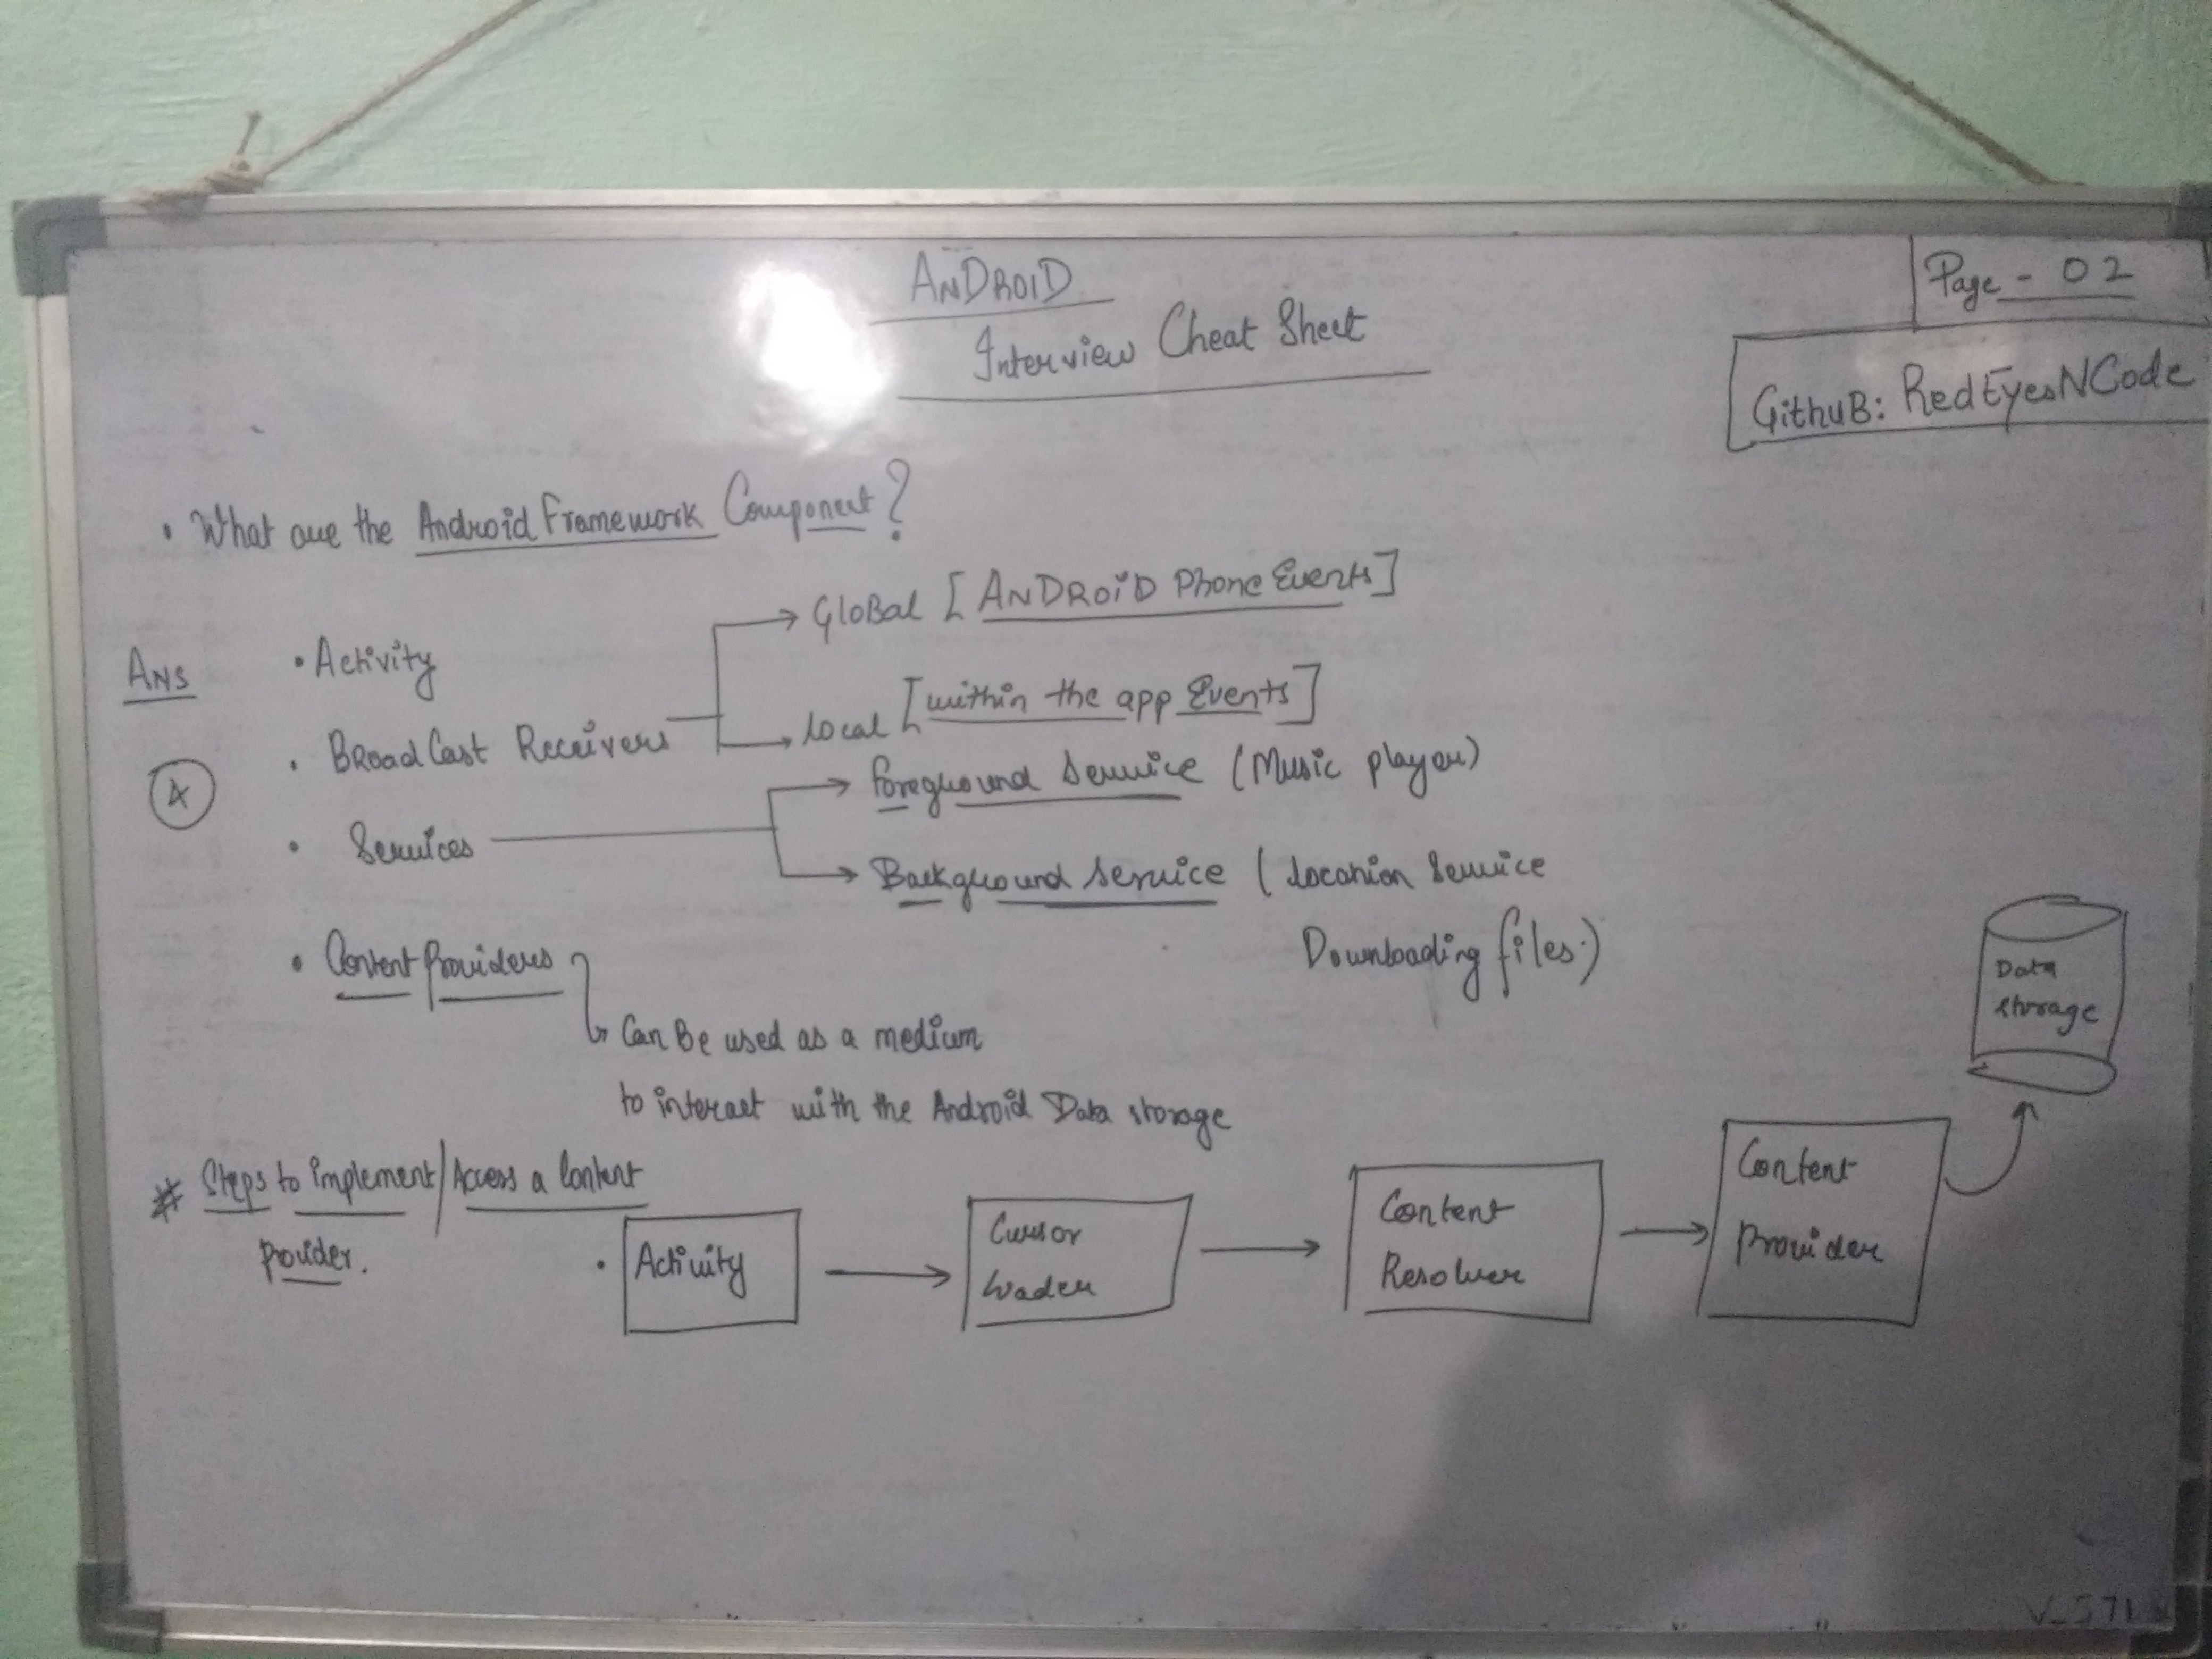 ANDROID
Interview Cheat Sheet
Page - 02
GithuB: RedEyesNCode
• What are the Android Framework Component?
Ans
4
• Activity
• BRoadCast Receivers
GloBal [ANDROiD Phone Events]
local [within the app Events]
• Services
Foreground Service (Music player)
Background service (location Service
Downloading files.)
• Content Providers
Can Be used as a medium
to interact with the Android Data storage
# Steps to implement/Access a Content
Provider.
• Activity
Cursor
loader
Content
Resolver
Content
Provider
Data
storage